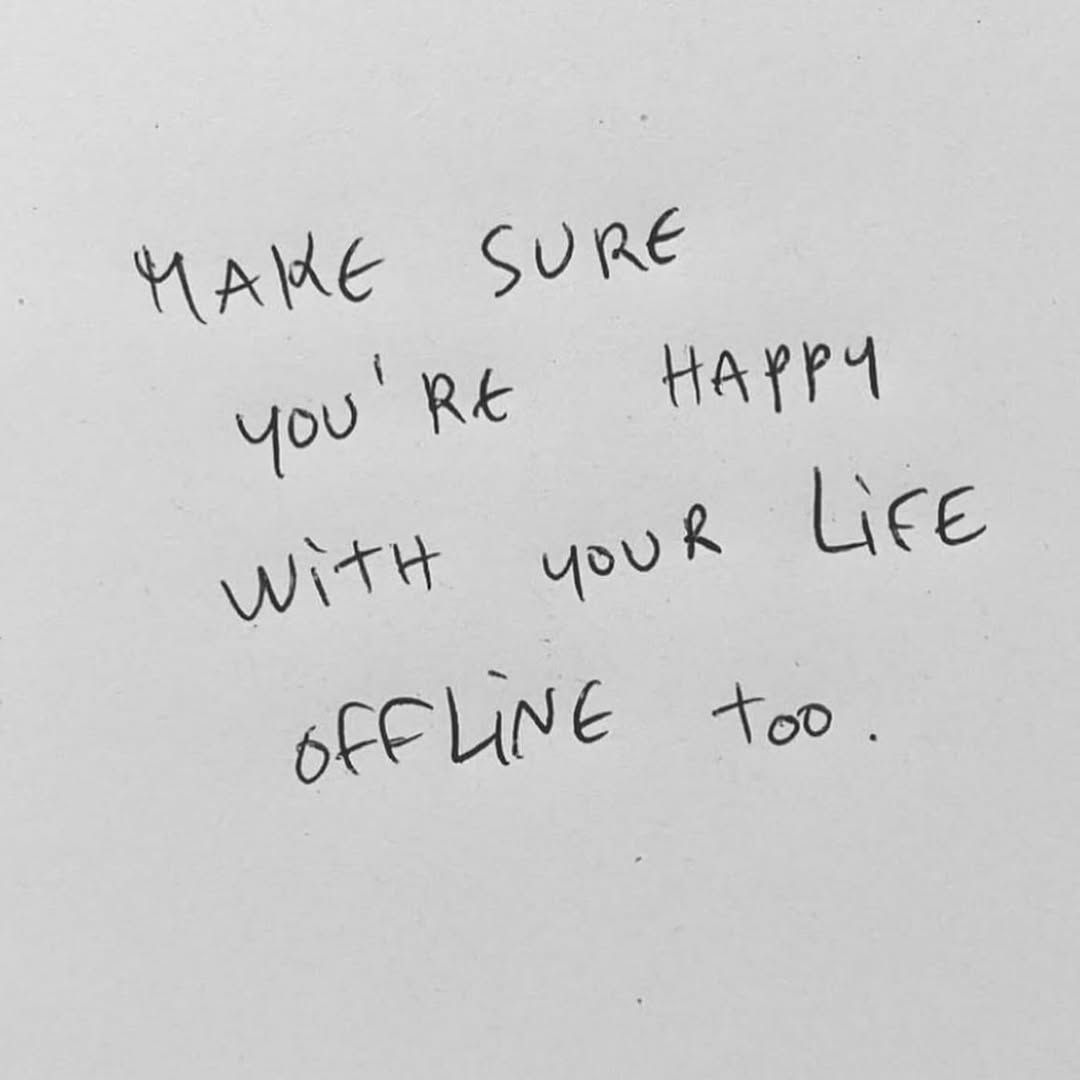 MAKE SURE
YOU'RE HAPPY
WiTH YOUR LiFE
OFFLiNE TOO.